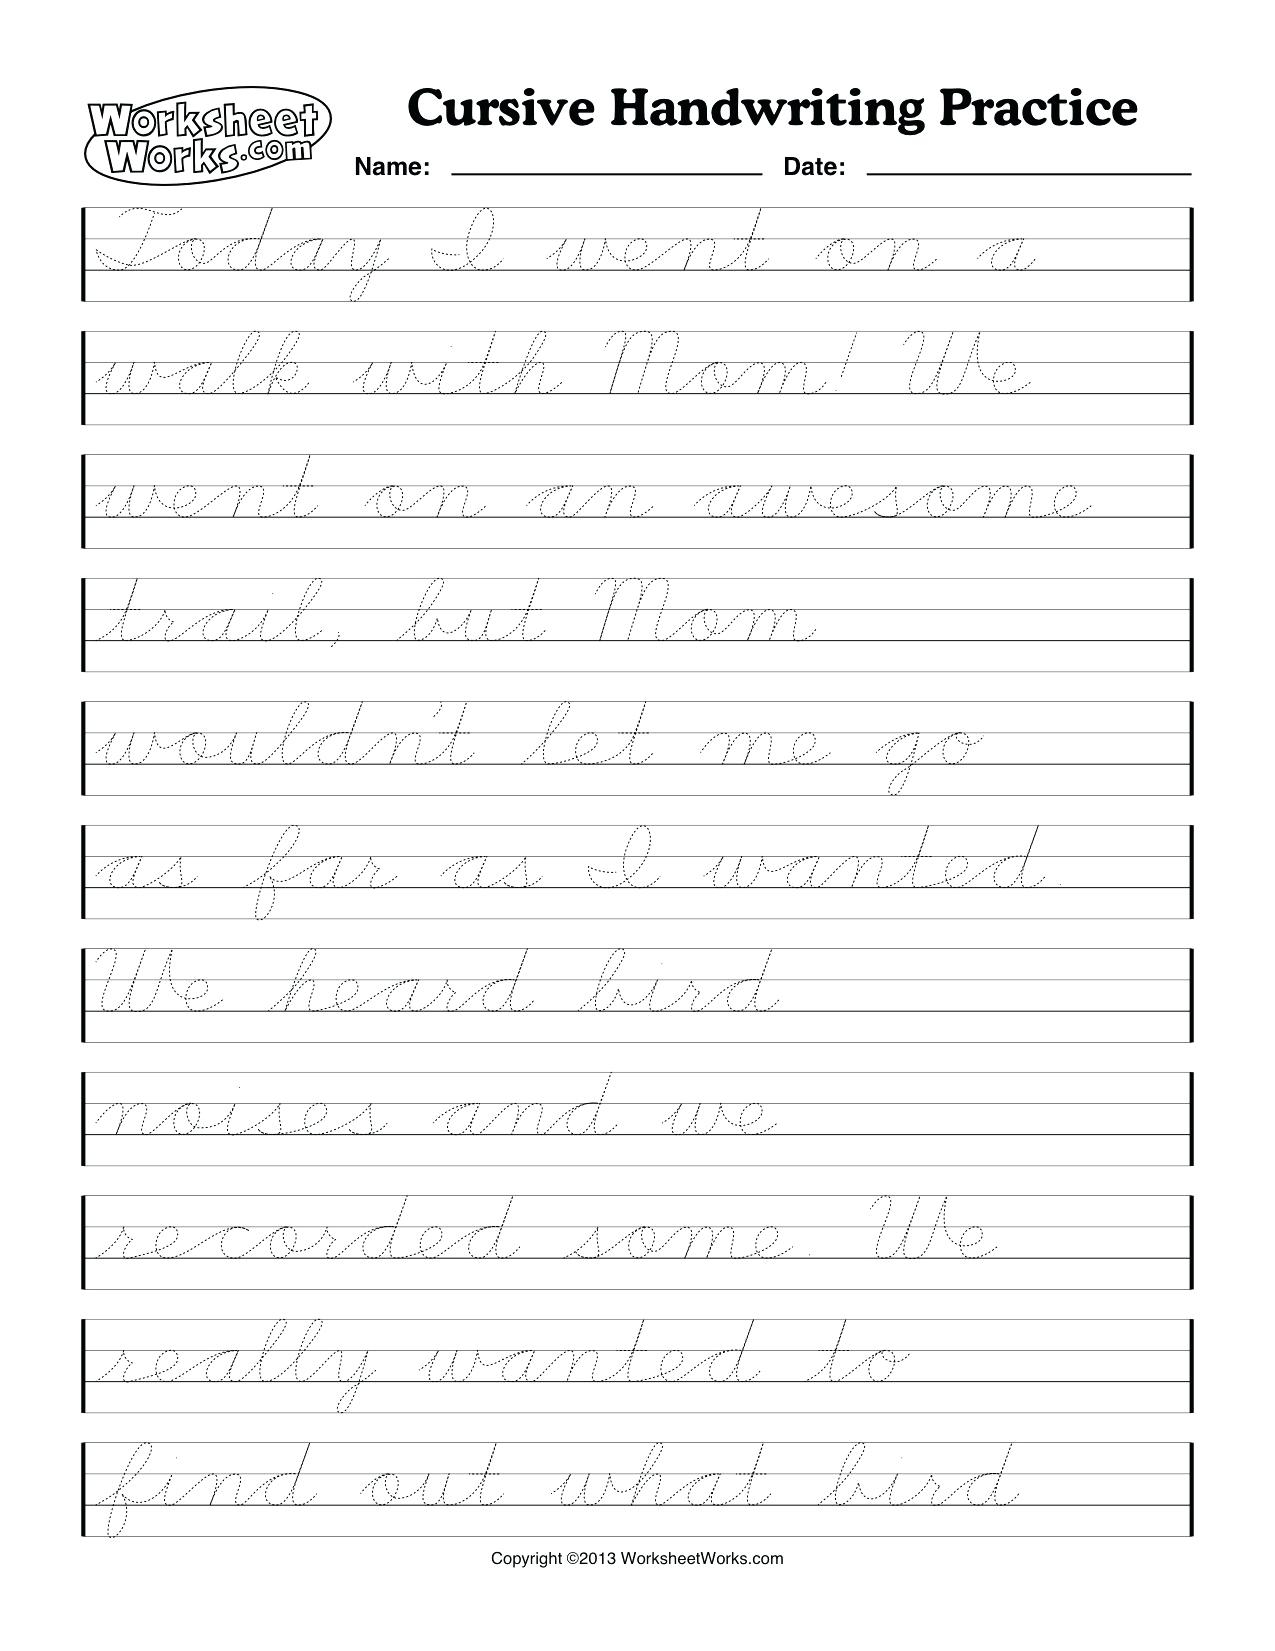 Worksheet Works.com
Cursive Handwriting Practice
Name: Date:
Today I went on a
walk with Mom! We
went on an awesome
trail, but Mom
wouldn't let me go
as far as I wanted.
We heard bird
noises and we
recorded some. We
really wanted to
find out what bird
Copyright ©2013 WorksheetWorks.com